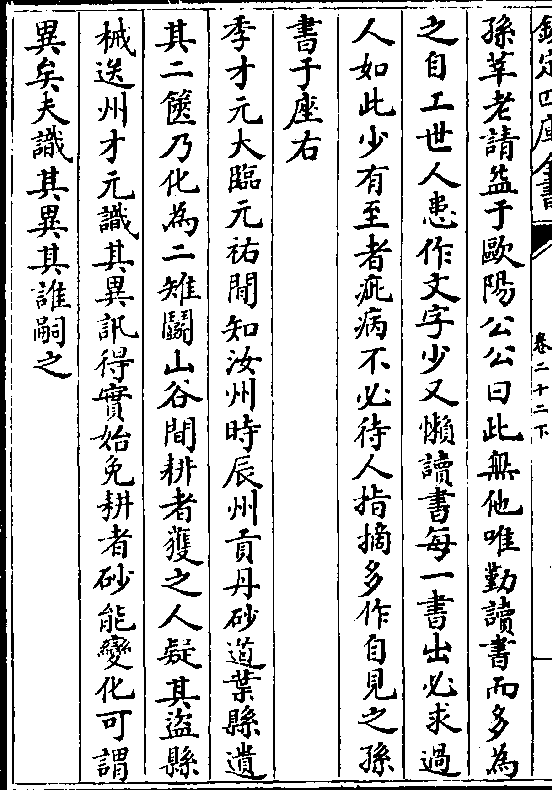 欽定四庫全書
卷二十二下
孫莘老請益于歐陽公公曰此無他唯勤讀書而多為
之自工世人患作文字少又懶讀書每一書出必求過
人如此少有至者疵病不必待人指摘多作自見之孫
書于座右
季才元大臨元祐間知汝州時辰州貢丹砂道葉縣遺
其二篋乃化為二雉鬬山谷間耕者獲之人疑其盜縣
械送州才元識其異訊得實始免耕者砂能變化可謂
異矣夫識其異其誰嗣之